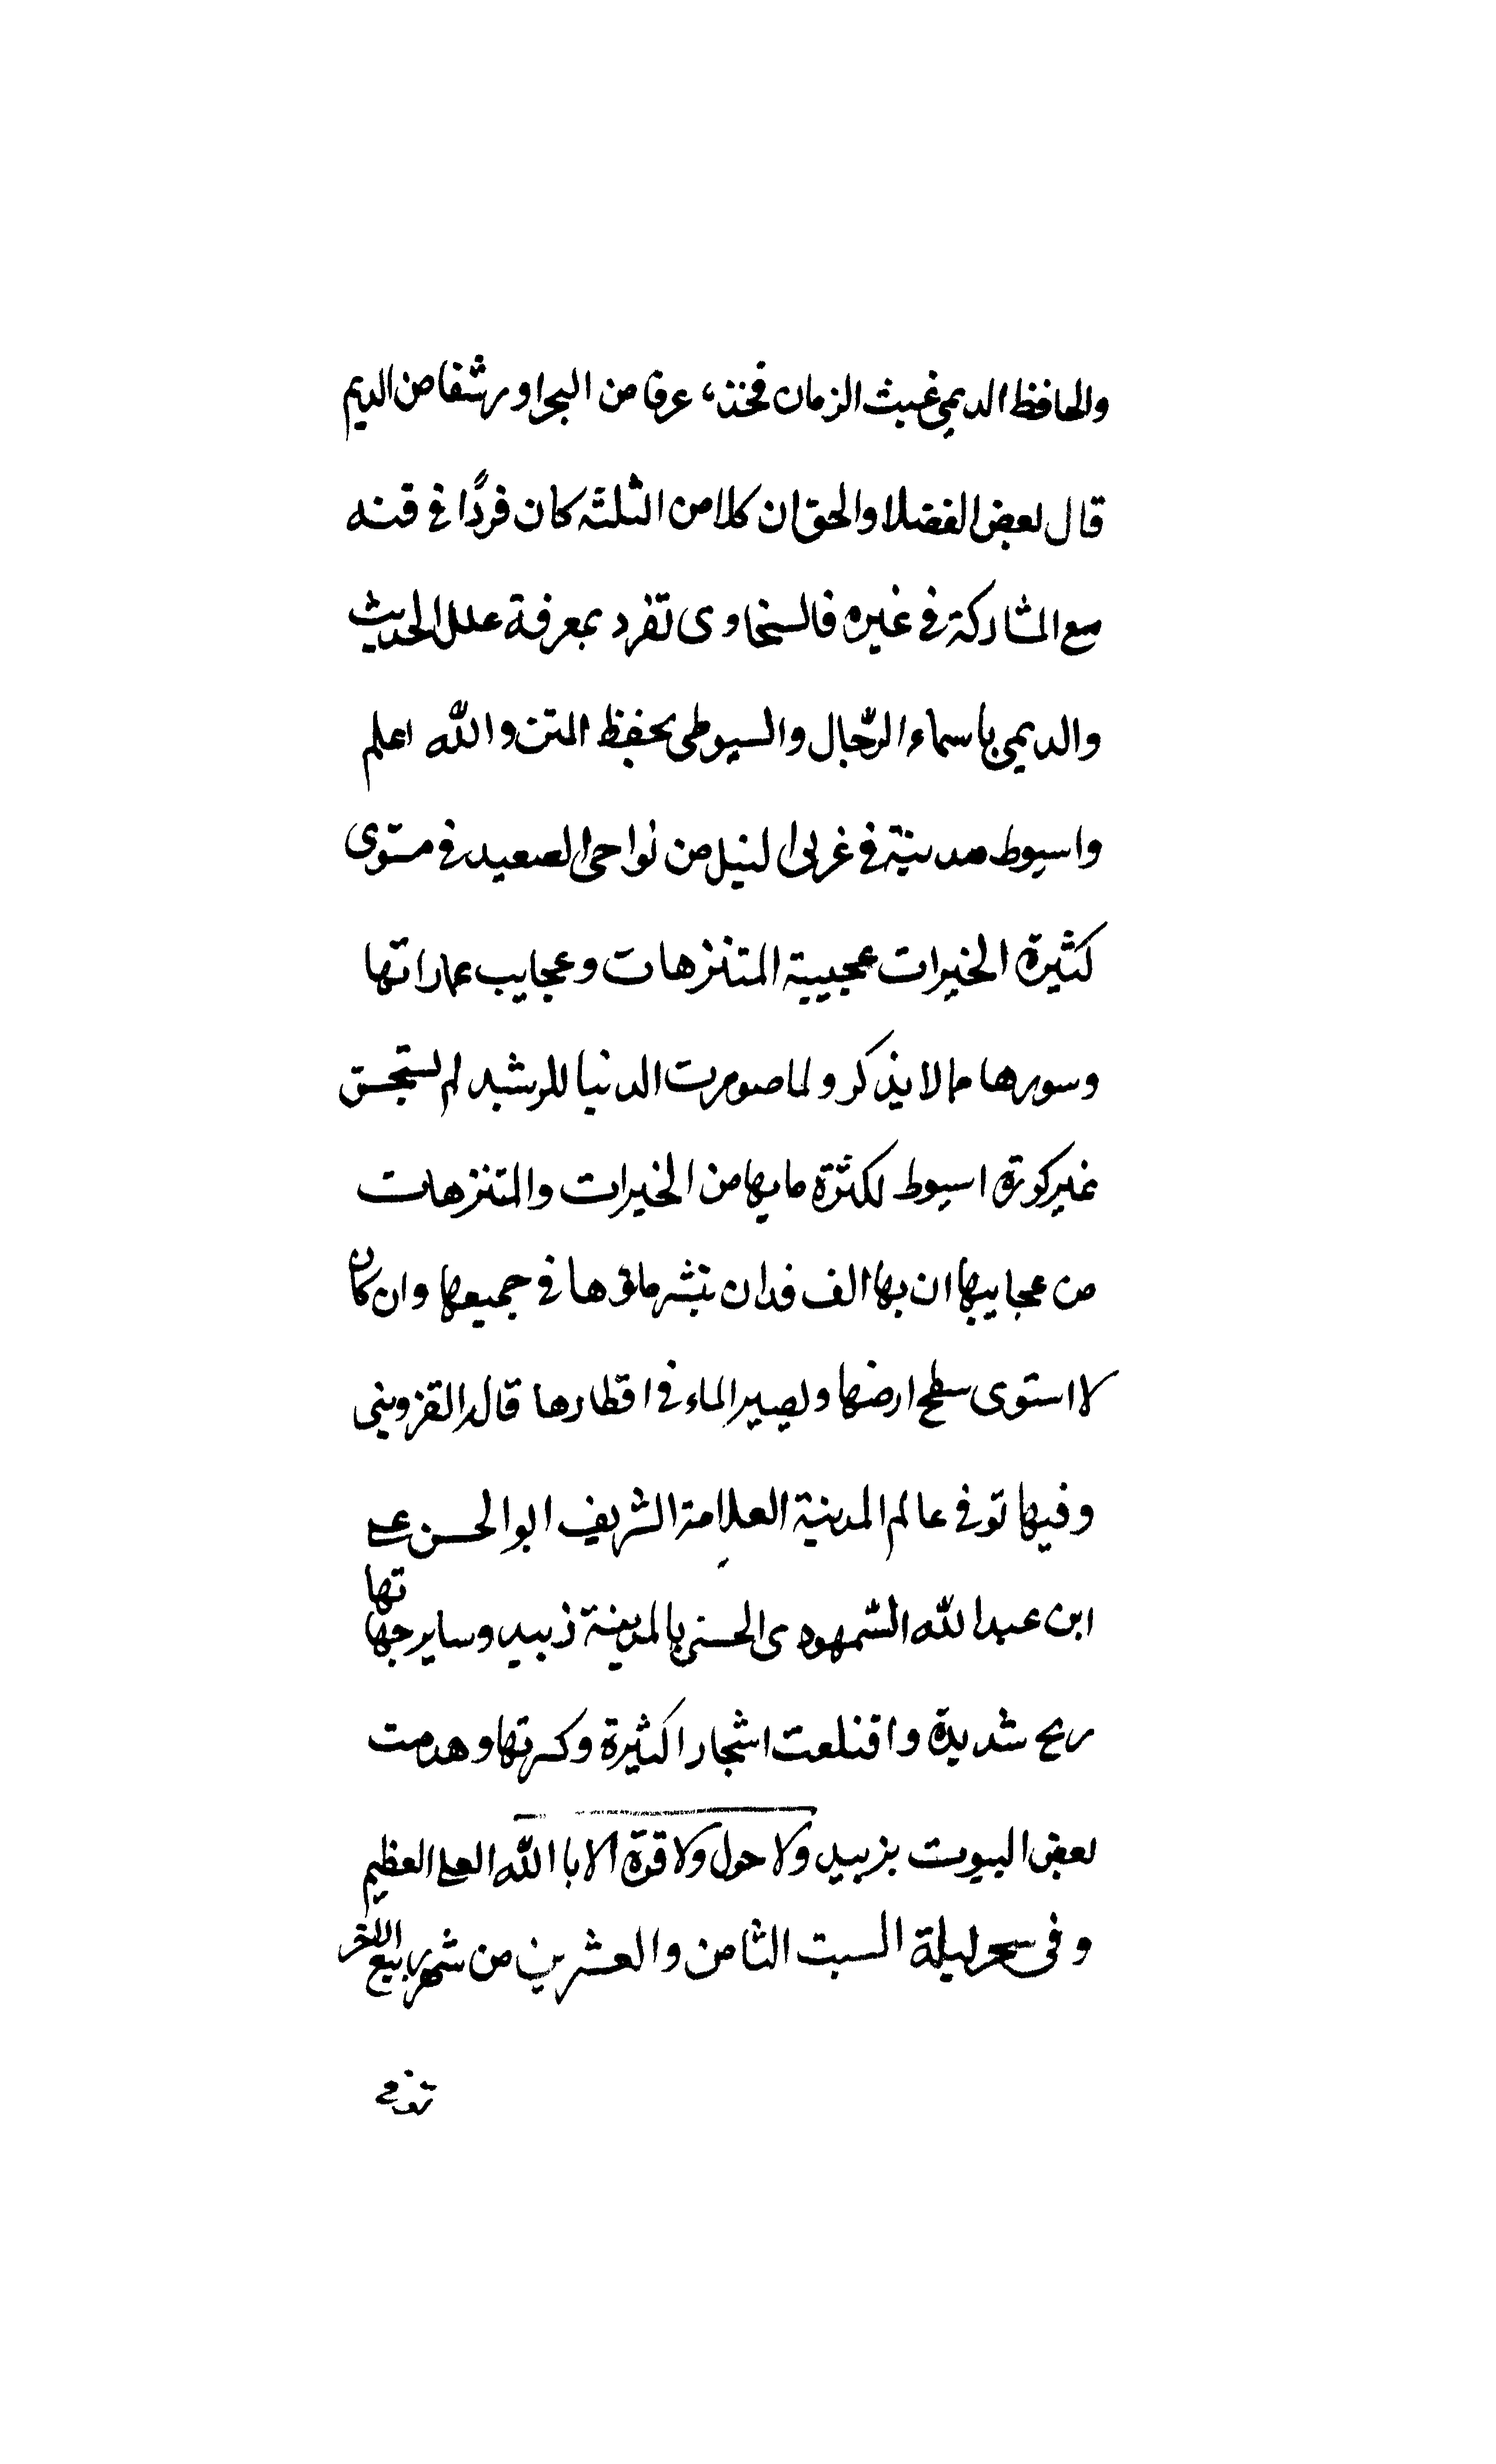 والحافظ الديمي غيث الزمان فخذ، غرفا من البحر او رشفا من الديم
قال بعض الفضلا والحق ان كلا من الثلثة كان فردًا في فنه
مع المشاركة في غيره فالسخاوى تفرد بمعرفة علل الحديث
والديمي باسماء الرّجال والسيوطى بحفظ المتن والله اعلم
واسيوط مدينة في غربى النيل من نواحى الصعيد في مستوى
كثيرة الخيرات عجيبة المتنزهات وعجايب عماراتها
وسورها ما لا يذكر ولما صورت الدنيا للرشيد لم يستحسن
غير كورة اسيوط لكثرة ما بها من الخيرات والمتنزهات
من عجايبها ان بها الف فدان ينشر ماؤها في جميعها وان كان
لاستوى سطح ارضها ويصير الماء في اقطارها قاله القزوينى
وفيها توفي عالم المدينة العلامة الشريف ابو الحسن على
ابن عبد الله السّمهودى الحسنى بالمدينة زبيد وساير جهاتها
ريح شديدة واقتلعت اشجارا كثيرة وكسرتها وهدمت
بعض البيوت بزبيد ولا حول ولا قوة الا باالله العلى العظيم
وفى سحر ليلة السبت الثامن والعشرين من شهر ربيع الاخر
توفي